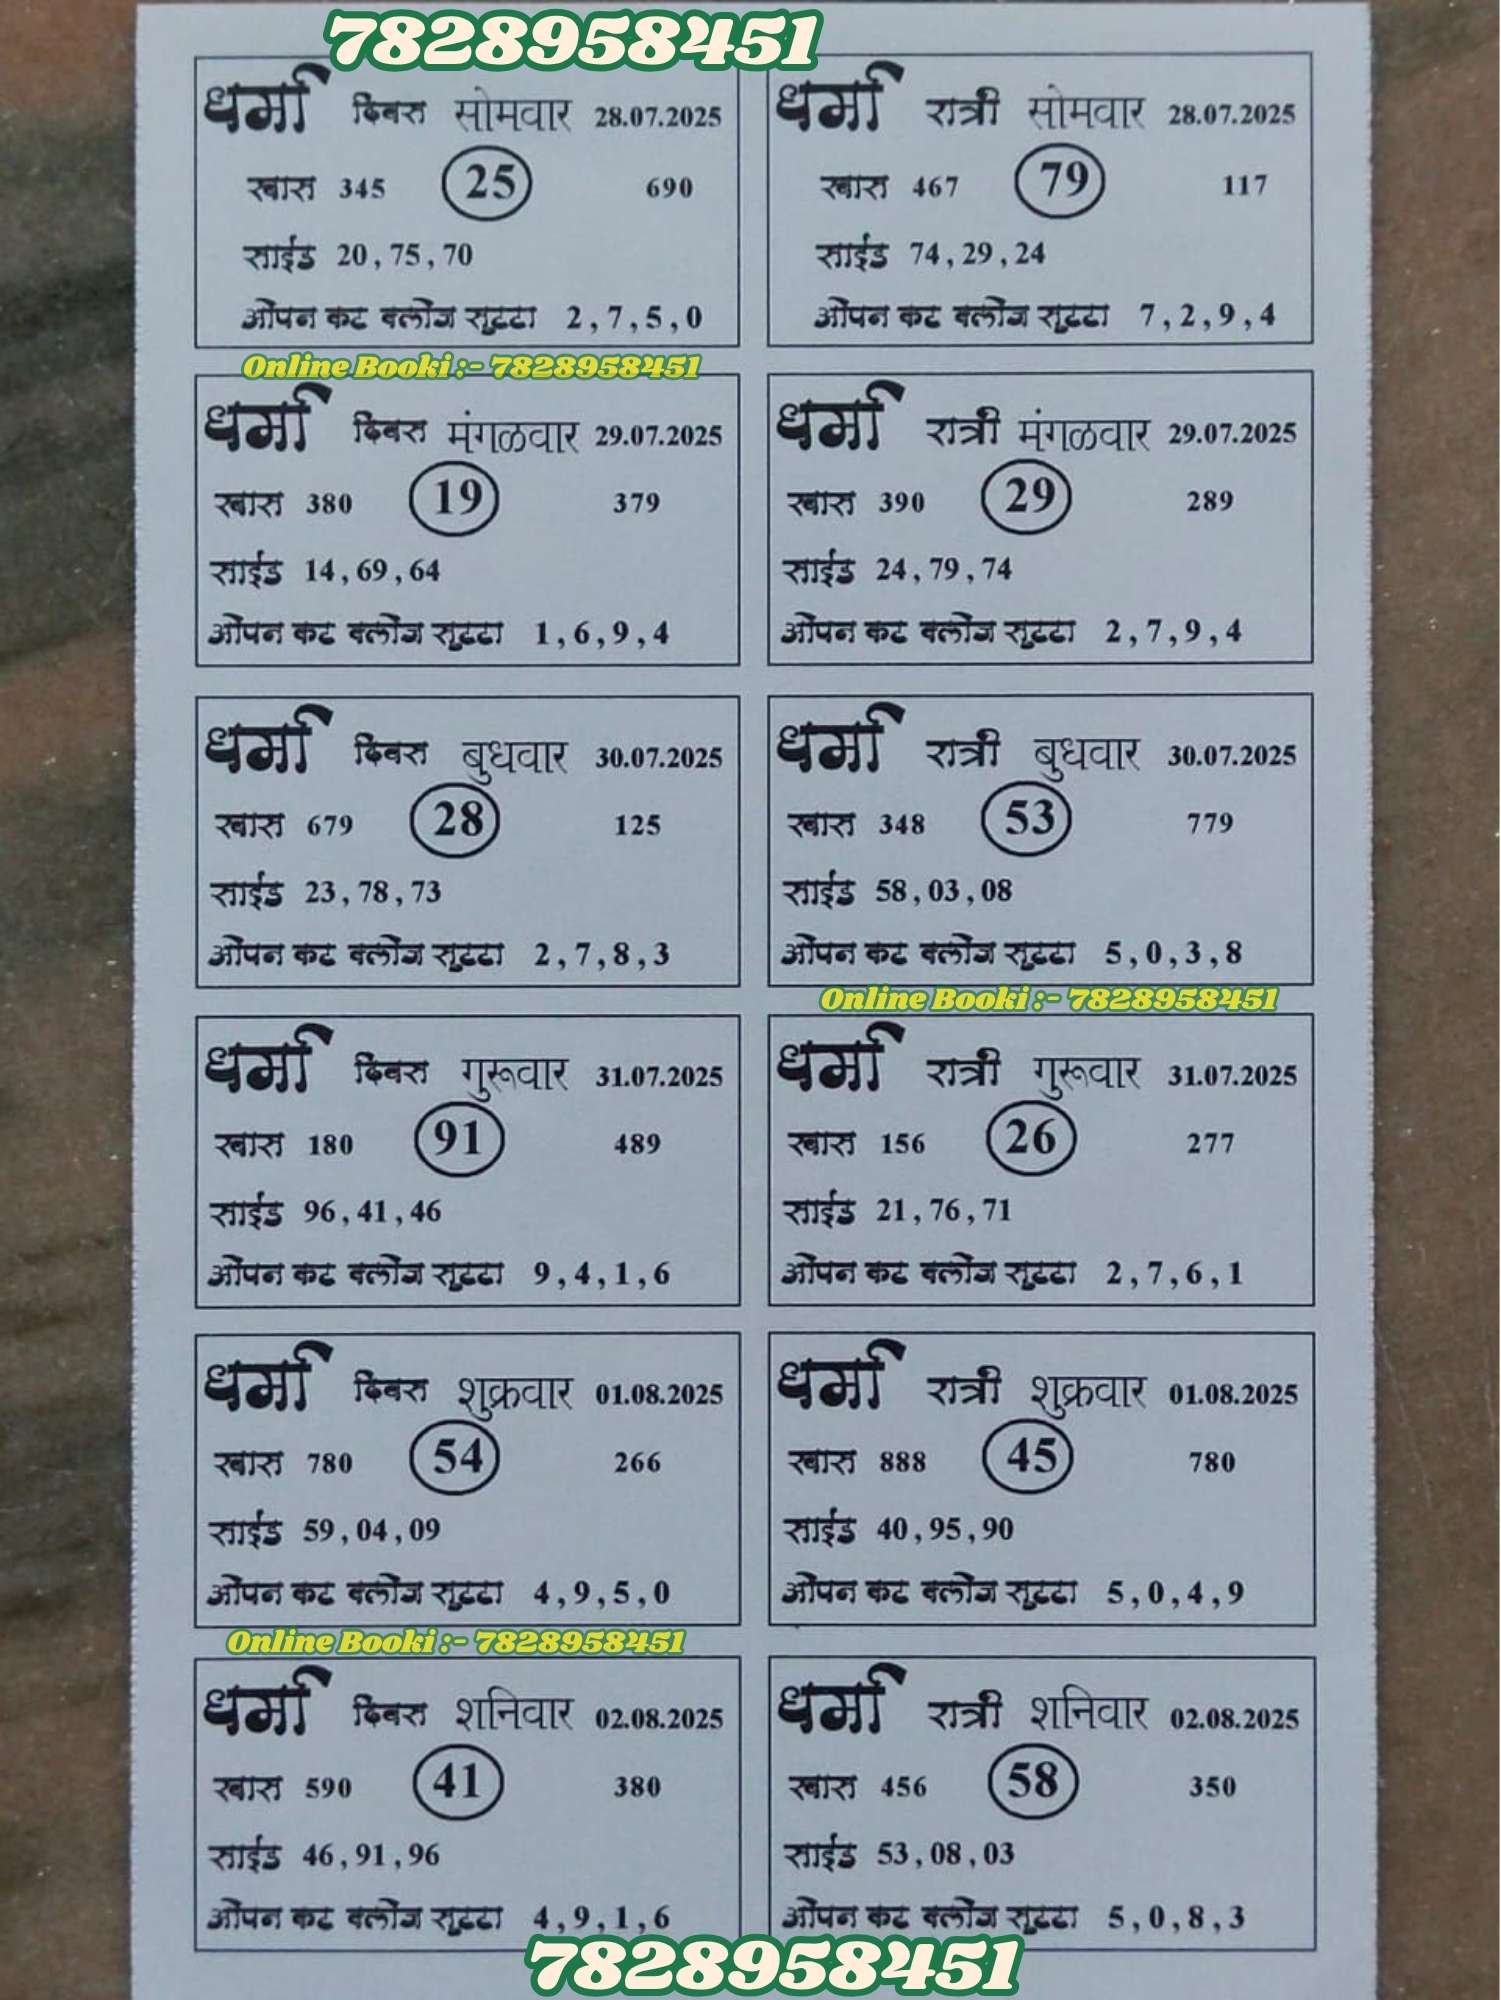 7828958451
धर्मा दिवस सोमवार 28.07.2025
खास 345 25 690
साईड 20, 75, 70
ओपन कट क्लोज सुट्टा 2, 7, 5, 0
धर्मा रात्री सोमवार 28.07.2025
खास 467 79 117
साईड 74, 29, 24
ओपन कट क्लोज सुट्टा 7, 2, 9, 4
Online Booki :- 7828958451
धर्मा दिवस मंगळवार 29.07.2025
खास 380 19 379
साईड 14, 69, 64
ओपन कट क्लोज सुट्टा 1, 6, 9, 4
धर्मा रात्री मंगळवार 29.07.2025
खास 390 29 289
साईड 24, 79, 74
ओपन कट क्लोज सुट्टा 2, 7, 9, 4
धर्मा दिवस बुधवार 30.07.2025
खास 679 28 125
साईड 23, 78, 73
ओपन कट क्लोज सुट्टा 2, 7, 8, 3
धर्मा रात्री बुधवार 30.07.2025
खास 348 53 779
साईड 58, 03, 08
ओपन कट क्लोज सुट्टा 5, 0, 3, 8
Online Booki :- 7828958451
धर्मा दिवस गुरूवार 31.07.2025
खास 180 91 489
साईड 96, 41, 46
ओपन कट क्लोज सुट्टा 9, 4, 1, 6
धर्मा रात्री गुरूवार 31.07.2025
खास 156 26 277
साईड 21, 76, 71
ओपन कट क्लोज सुट्टा 2, 7, 6, 1
धर्मा दिवस शुक्रवार 01.08.2025
खास 780 54 266
साईड 59, 04, 09
ओपन कट क्लोज सुट्टा 4, 9, 5, 0
धर्मा रात्री शुक्रवार 01.08.2025
खास 888 45 780
साईड 40, 95, 90
ओपन कट क्लोज सुट्टा 5, 0, 4, 9
Online Booki :- 7828958451
धर्मा दिवस शनिवार 02.08.2025
खास 590 41 380
साईड 46, 91, 96
ओपन कट क्लोज सुट्टा 4, 9, 1, 6
धर्मा रात्री शनिवार 02.08.2025
खास 456 58 350
साईड 53, 08, 03
ओपन कट क्लोज सुट्टा 5, 0, 8, 3
7828958451